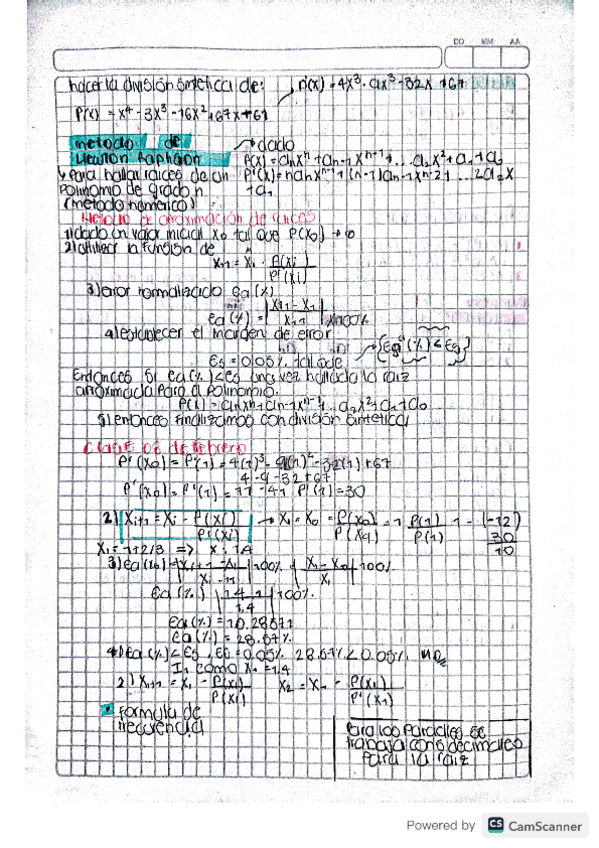 DD MM AA
hacer la división sintetica de: P(x) = 4x³ - 9x² - 32x + 67
P(x) = x⁴ - 3x³ - 16x² + 67x + 61
metodo de
Newton Raphson
→ dado
P(x) = anxⁿ + an-1 xⁿ⁻¹ + ... a2x² + a1 + a0
↳ Para hallar raices de un P'(x) = nanxⁿ⁻¹ + (n-1)an-1xⁿ⁻² + ... 2a2x
Polinomio de grado n + a1
(metodo numerico)
Metodo de aproximación de raices
1) dado un valor inicial x0 tal que P(x0) → 0
2) utilizar la función de
Xi+1 = Xi - P(xi) / P'(xi)
3) error normalizado Ea(%)
Ea(%) = | Xi+1 - Xi / Xi+1 | x100%
4) establecer el margen de error
Es = 0.05% tal que {Ea(%) < Es}
Entonces si Ea(%) < Es una vez hallada la raiz
aproximada para el polinomio.
P(x) = anxⁿ + an-1xⁿ⁻¹ + ... a2x² + a1 + a0
5) entonces finalizamos con división sintetica
Clase 08 de febrero
P'(x0) = P'(1) = 4(1)³ - 9(1)² - 32(1) + 67
4 - 9 - 32 + 67
P'(x0) = P'(1) = 71 - 41 P'(1) = 30
2) Xi+1 = Xi - P(xi) / P'(xi) → X1 = X0 - P(x0) / P'(x0) = 1 P(1) / P(1) 1 - (-12) / 30
10
X1 = 1+2/3 => x = 1.4
3) Ea(x0) = | Xi+1 - Xi / Xi+1 | 100% | X1 - X0 / X1 | 100%
Ea(%) | 1.4 - 1 / 1.4 | 100%
Ea(%) = 0.28571
Ea(%) = 28.57%
4) Ea(%) < Es, Es = 0.05% 28.57% < 0.05% no
I1 como X1 = 1.4
2) Xi+1 = Xi - P(xi) / P'(xi) X2 = X1 - P(x1) / P'(x1)
formula de
recurencia
Para los Parciales se
trabaja con 5 decimales
para la raiz
Powered by CS CamScanner